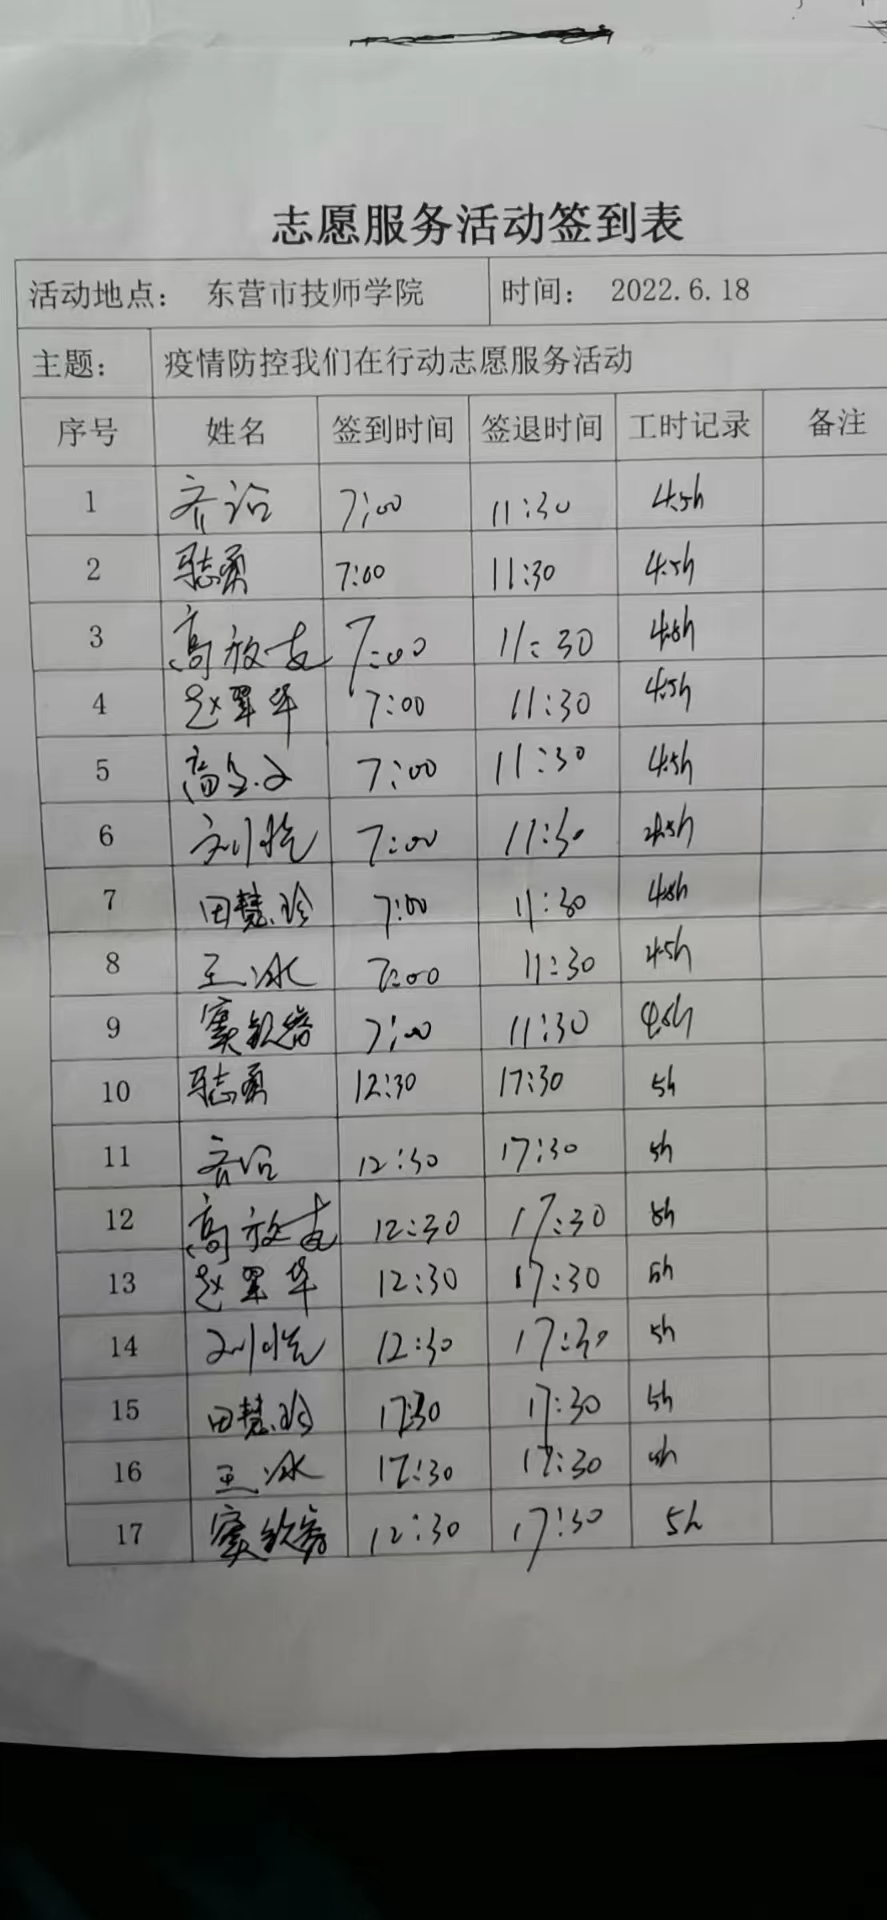 志愿服务活动签到表
活动地点： 东营市技师学院 时间： 2022.6.18
主题： 疫情防控我们在行动志愿服务活动
序号 姓名 签到时间 签退时间 工时记录 备注
1 7:00 11:30 4.5h
2 7:00 11:30 4.5h
3 7:00 11:30 4.5h
4 7:00 11:30 4.5h
5 7:00 11:30 4.5h
6 7:00 11:30 4.5h
7 田慧玲 7:00 11:30 4.5h
8 王冰 7:00 11:30 4.5h
9 7:00 11:30 4.5h
10 12:30 17:30 5h
11 12:30 17:30 5h
12 12:30 17:30 5h
13 12:30 17:30 5h
14 12:30 17:30 5h
15 田慧玲 17:30 5h
16 王冰 17:30 5h
17 12:30 17:30 5h